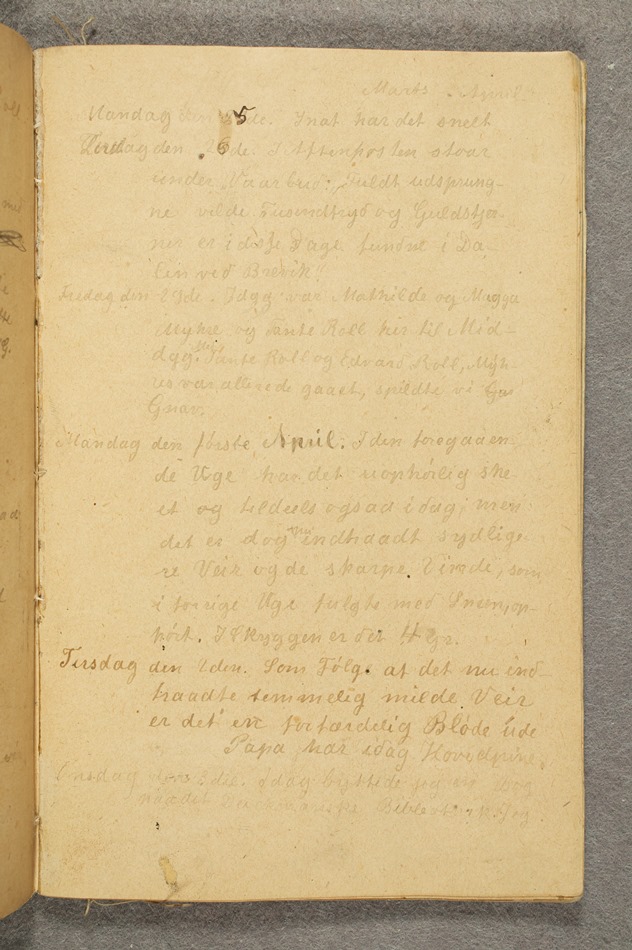 Marts. April.
Mandag den 25de. Inat har det sneet
Tirsdag den 26de. I Aftenposten stoar
under "Vaarbud": "Fuldt udsprung-
ne vilde Tusindfryd og Guldstjær-
ner er i disse Dage fundne i Da-
len ved Brevik".
Fredag den 29de. Idag var Mathilde og Magga
Myhre og Tante Roll her til Mid-
dag. Tante Roll og Edvard Roll, Myh-
res var allerede gaaet, spildte vi
Gnav.
Mandag den første April. I den foregaaen
de Uge har det uophørlig sne
et og tildeels ogsaa idag; men
det er dog indtraadt sydlige-
re Veir og de skarpe Vinde, som
i forrige Uge fulgte med Sneen, op-
hørt. I Skyggen er det 4 gr.
Tirsdag den 2den. Som Følge af det nu ind-
traadte temmelig milde Veir
er det en forfærdelig Bløde ude
Papa har idag Hovedpine.
Onsdag den 3die. Idag byttede jeg en Bog